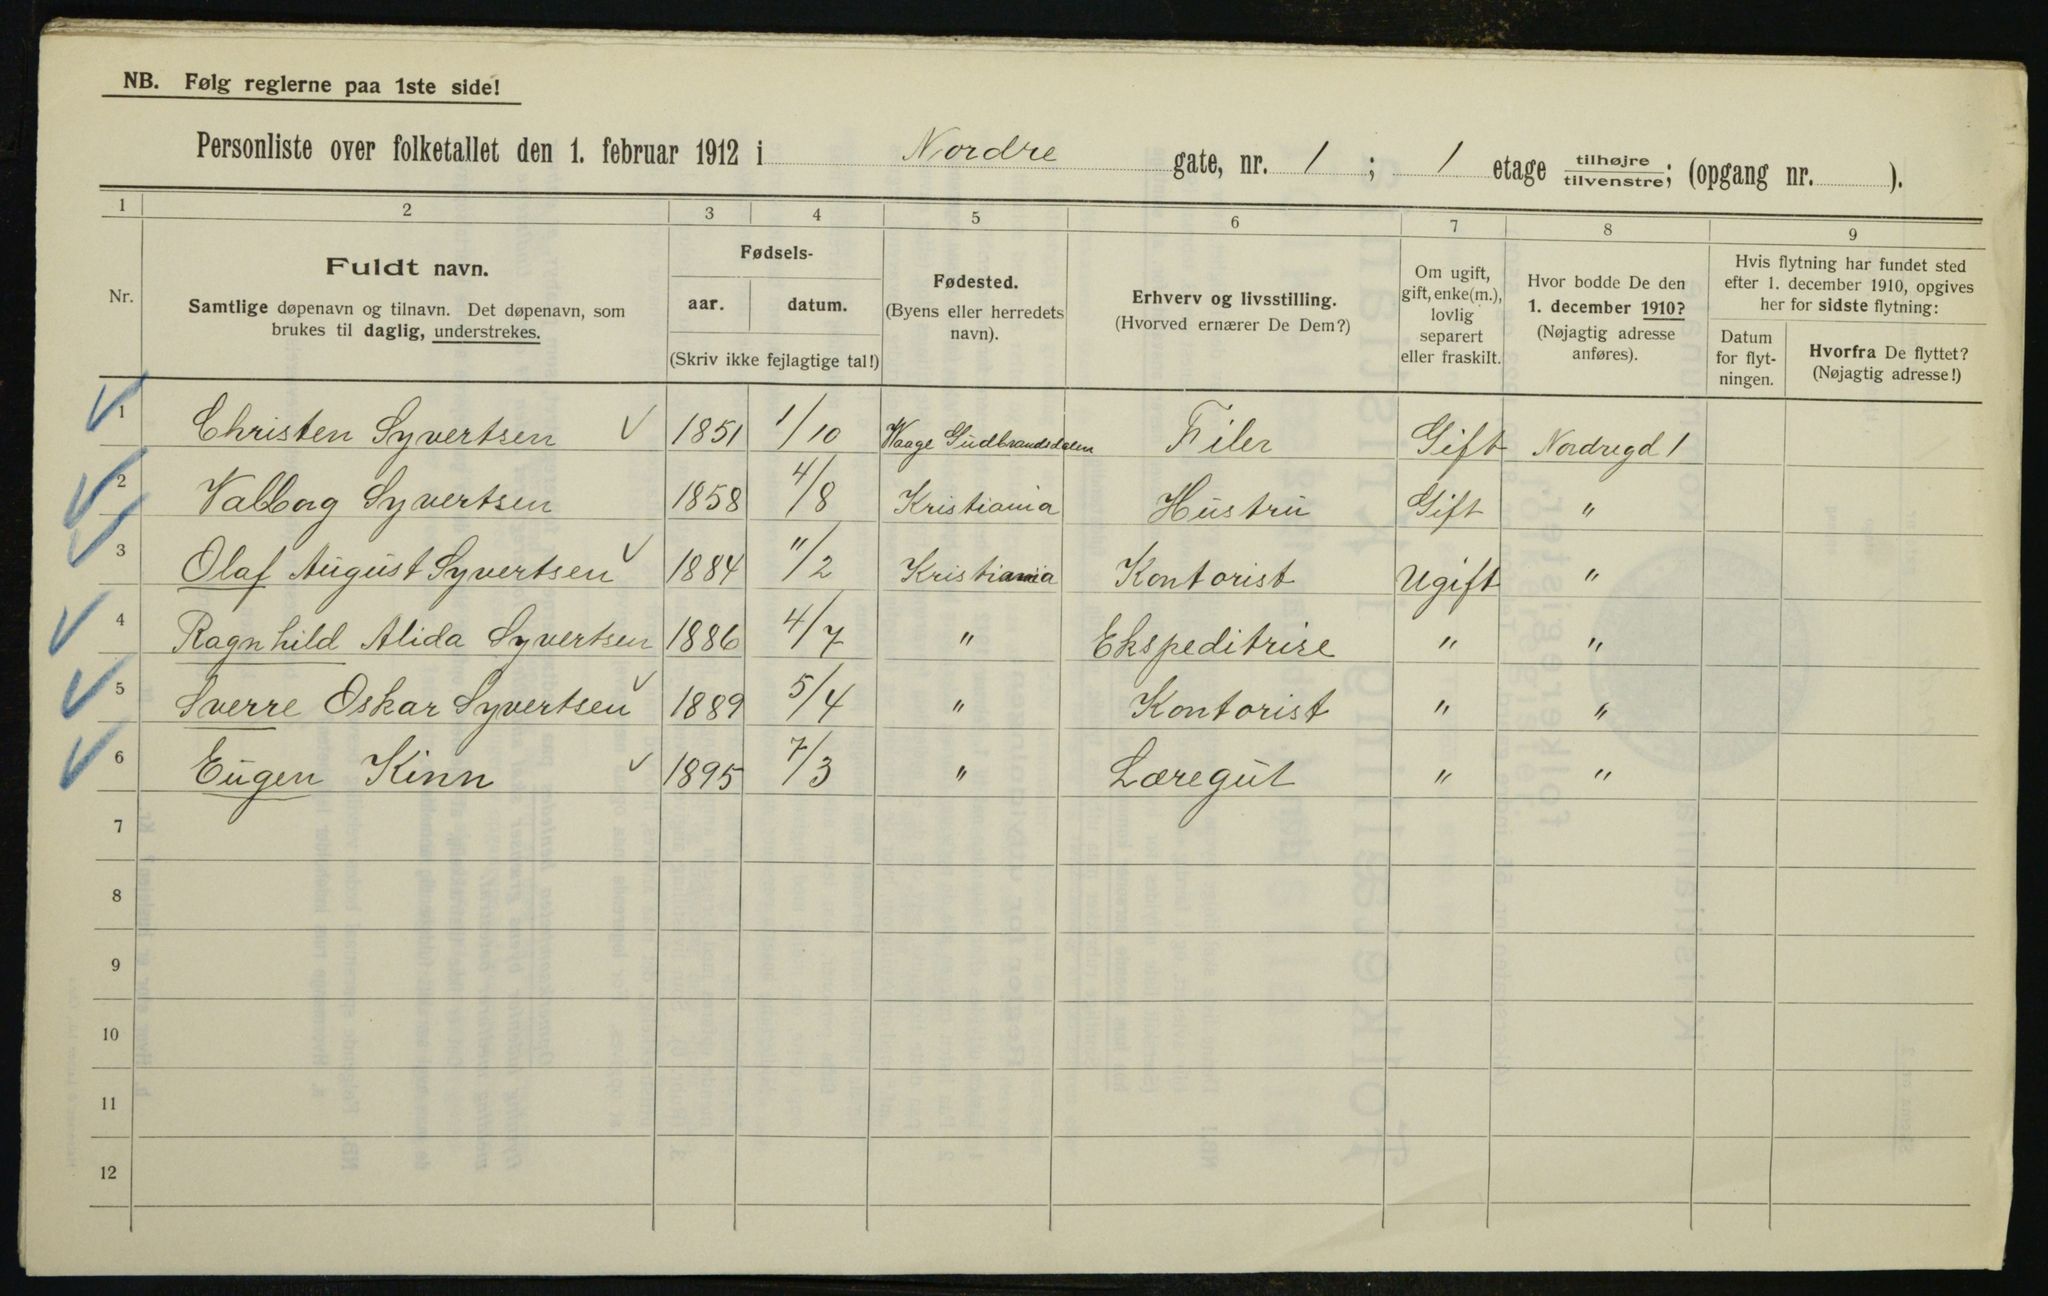 NB. Følg reglerne paa 1ste side!
Personliste over folketallet den 1. februar 1912 i Nordre gate, nr. 1 ; 1 etage tilhøjre/tilvenstre; (opgang nr. ).
1 2 3 4 5 6 7 8 9
Nr.
Fuldt navn.
Samtlige døpenavn og tilnavn. Det døpenavn, som
brukes til daglig, understrekes.
Fødsels-
aar. datum.
(Skriv ikke fejlagtige tal!)
Fødested.
(Byens eller herredets
navn).
Erhverv og livsstilling.
(Hvorved ernærer De Dem?)
Om ugift,
gift, enke(m.),
lovlig
separert
eller fraskilt.
Hvor bodde De den
1. december 1910?
(Nøjagtig adresse
anføres).
Hvis flytning har fundet sted
efter 1. december 1910, opgives
her for sidste flytning:
Datum
for flyt-
ningen.
Hvorfra De flyttet?
(Nøjagtig adresse!)
1 Christen Syvertsen 1851 1/10 Waage Gudbrandsdalen Filer Gift Nordregd 1
2 Valborg Syvertsen 1858 4/8 Kristiania Hustru Gift "
3 Olaf August Syvertsen 1884 11/2 Kristiania Kontorist Ugift "
4 Ragnhild Alida Syvertsen 1886 4/7 " Ekspeditrise " "
5 Sverre Oskar Syvertsen 1889 5/4 " Kontorist " "
6 Eugen Kinn 1895 7/3 " Læregut " "
7
8
9
10
11
12